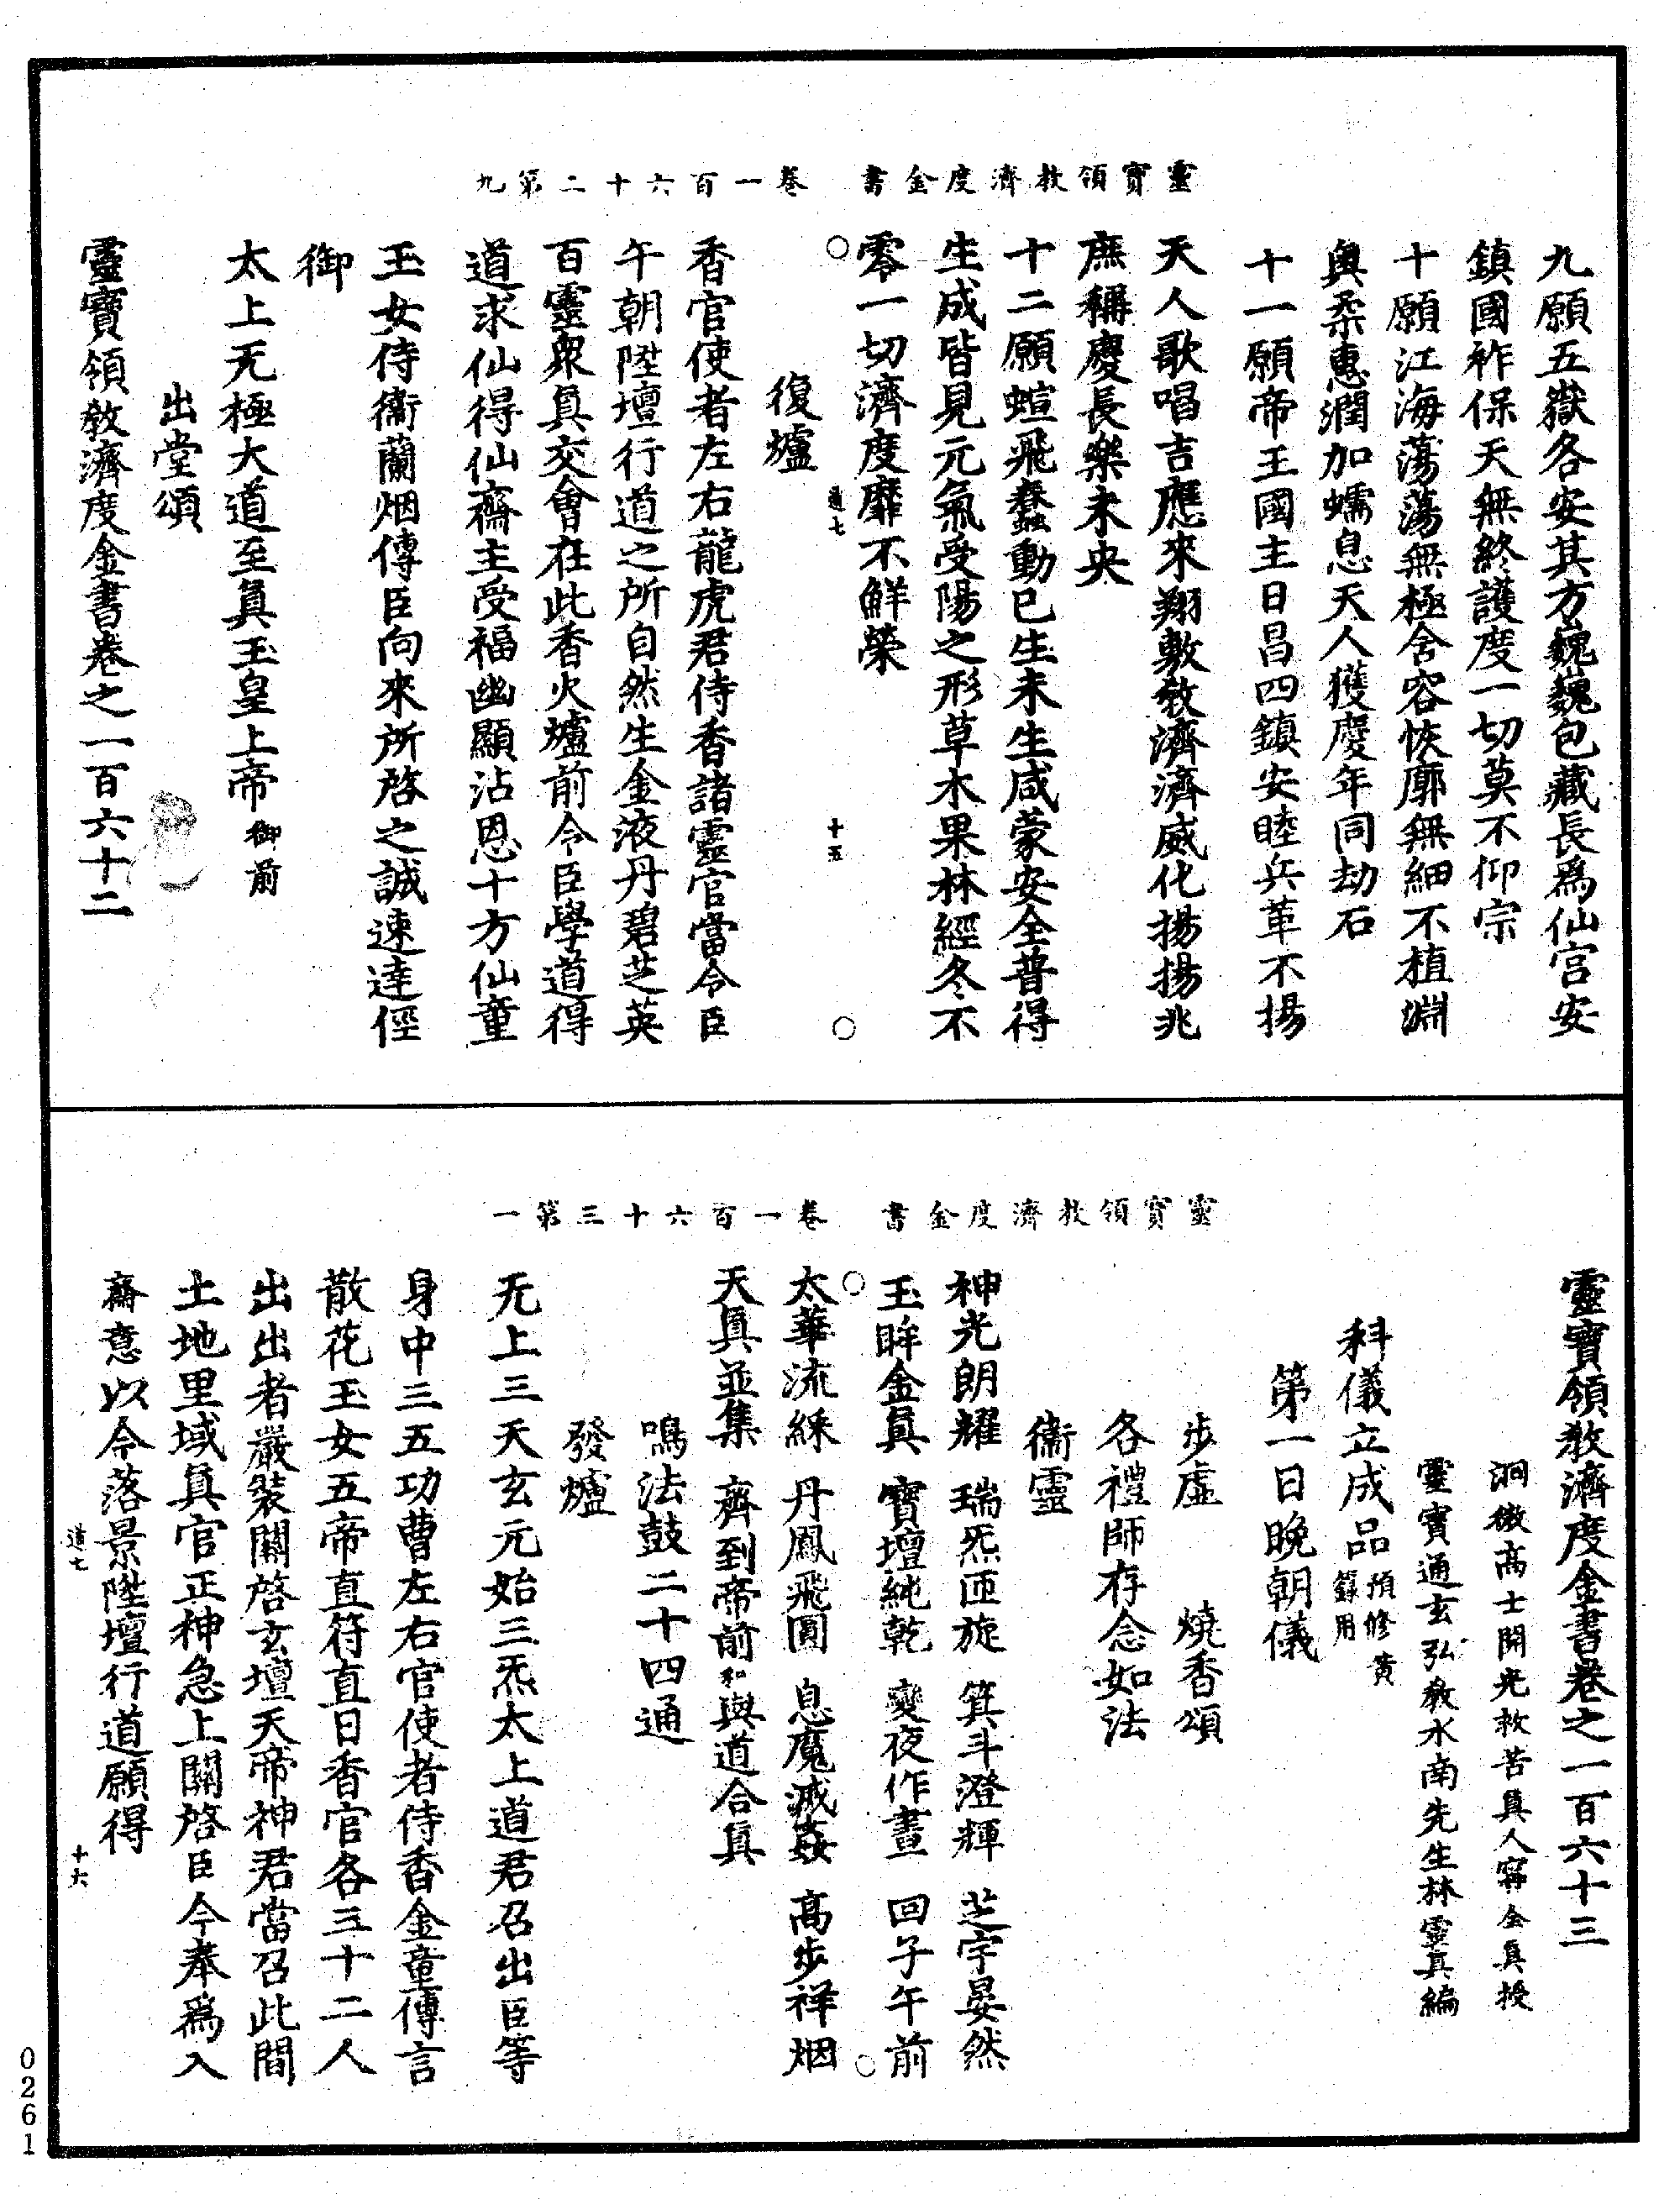 靈寶領教濟度金書　卷一百六十二第九
九願五嶽各安其方巍巍包藏長爲仙宮安
鎮國祚保天無終護度一切莫不仰宗
十願江海蕩蕩無極含容恢廓無細不植淵
輿柔惠潤加蠕息天人獲慶年同劫石
十一願帝王國主日昌四鎮安睦兵革不揚
天人歌唱吉應來翔敷敎濟濟威化揚揚兆
庶稱慶長樂未央
十二願蝖飛蠢動已生未生咸蒙安全普得
生成皆見元氣受陽之形草木果林經冬不
零一切濟度靡不鮮榮
道七　十五
復爐
香官使者左右龍虎君侍香諸靈官當令臣
午朝陞壇行道之所自然生金液丹碧芝英
百靈衆眞交會在此香火爐前令臣學道得
道求仙得仙齋主受福幽顯沾恩十方仙童
玉女侍衞蘭烟傳臣向來所啓之誠速達徑
御
太上无極大道至眞玉皇上帝御前
出堂頌
靈寶領敎濟度金書卷之一百六十二
靈寶領教濟度金書　卷一百六十三第一
靈寶領敎濟度金書卷之一百六十三
洞微高士開光救苦眞人甯全眞授
靈寶通玄弘敎水南先生林靈眞編
科儀立成品預修黃籙用
第一日晚朝儀
步虛　燒香頌
各禮師存念如法
衞靈
神光朗耀　瑞炁匝旋　箕斗澄輝　芝宇晏然
玉眸金眞　寶壇純乾　變夜作晝　回子午前
太華流綵　丹鳳飛圓　息魔滅姦　高步祥烟
天眞並集　齊到帝前和與道合眞
鳴法鼓二十四通
發爐
无上三天玄元始三炁太上道君召出臣等
身中三五功曹左右官使者侍香金童傳言
散花玉女五帝直符直日香官各三十二人
出出者嚴裝關啓玄壇天帝神君當召此間
土地里域眞官正神急上關啓臣今奉爲入
齋意以今落景陞壇行道願得
道七　十六
0261